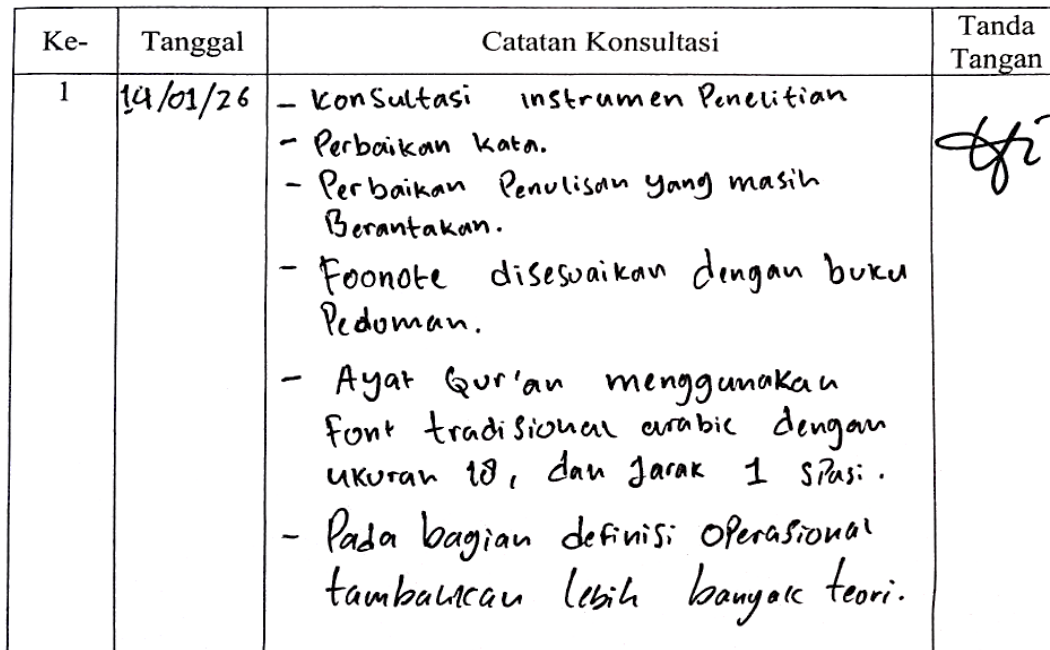 Ke- Tanggal Catatan Konsultasi Tanda Tangan
1 14/01/26 - Konsultasi instrumen Penelitian
- Perbaikan kata.
- Perbaikan Penulisan yang masih
Berantakan.
- Foonote disesuaikan dengan buku
Pedoman.
- Ayat Qur'an menggunakan
Font tradisional arabic dengan
ukuran 18, dan Jarak 1 spasi.
- Pada bagian definisi operasional
tambahkan lebih banyak teori.